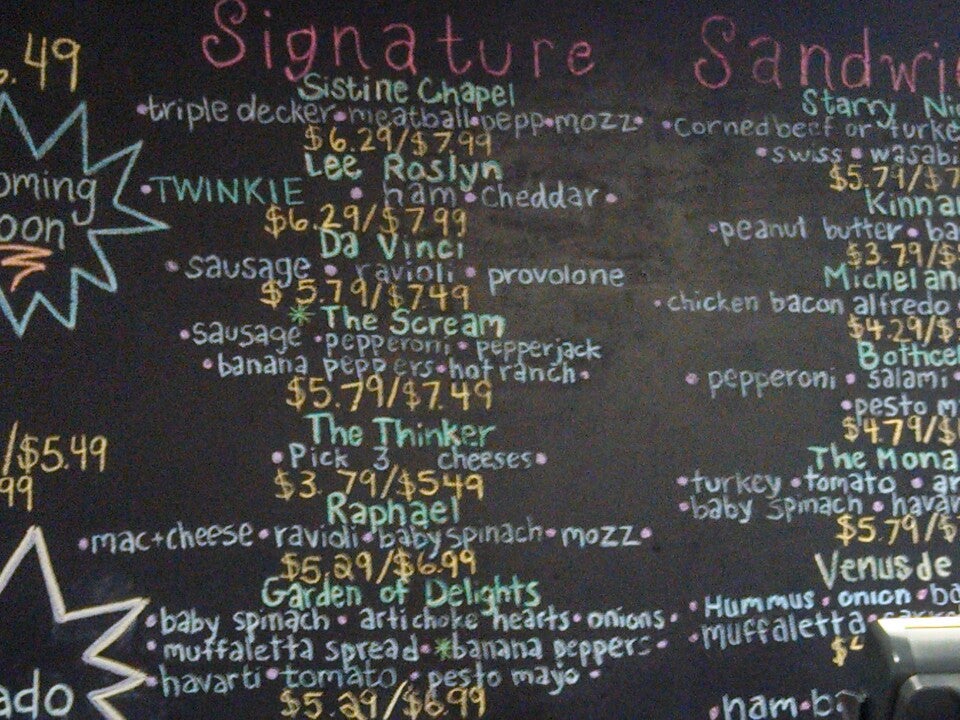 .49
Signature Sandwi
Sistine Chapel
•triple decker•meatball•pepp•mozz•
$6.29/$7.99
Lee Roslyn
•TWINKIE • ham•cheddar•
$6.29/$7.99
Da Vinci
•sausage • ravioli • provolone
$5.79/$7.49
*The Scream
•sausage •pepperoni • pepperjack
•banana peppers•hot ranch•
$5.79/$7.49
The Thinker
•Pick 3 cheeses•
$3.79/$5.49
Raphael
•mac+cheese•ravioli•baby spinach•mozz•
$5.29/$6.99
Garden of Delights
•baby spinach • artichoke hearts • onions•
•muffaletta spread•*banana peppers•
•havarti•tomato • pesto mayo •
$5.29/$6.99
Starry Ni
•Corned beef or turke
•swiss • wasabi
$5.79/$7
Kinna
•peanut butter•ba
$3.79/$
Michelan
•chicken bacon alfredo
$4.29/$
Botticel
• pepperoni • salami
•pesto m
$4.79/$
The Mona
•turkey •tomato • ar
•baby spinach • havar
$5.79/$
Venus de
•Hummus • onion•ba
•muffaletta•
•ham•b
oming
oon
/$5.49
99
ado